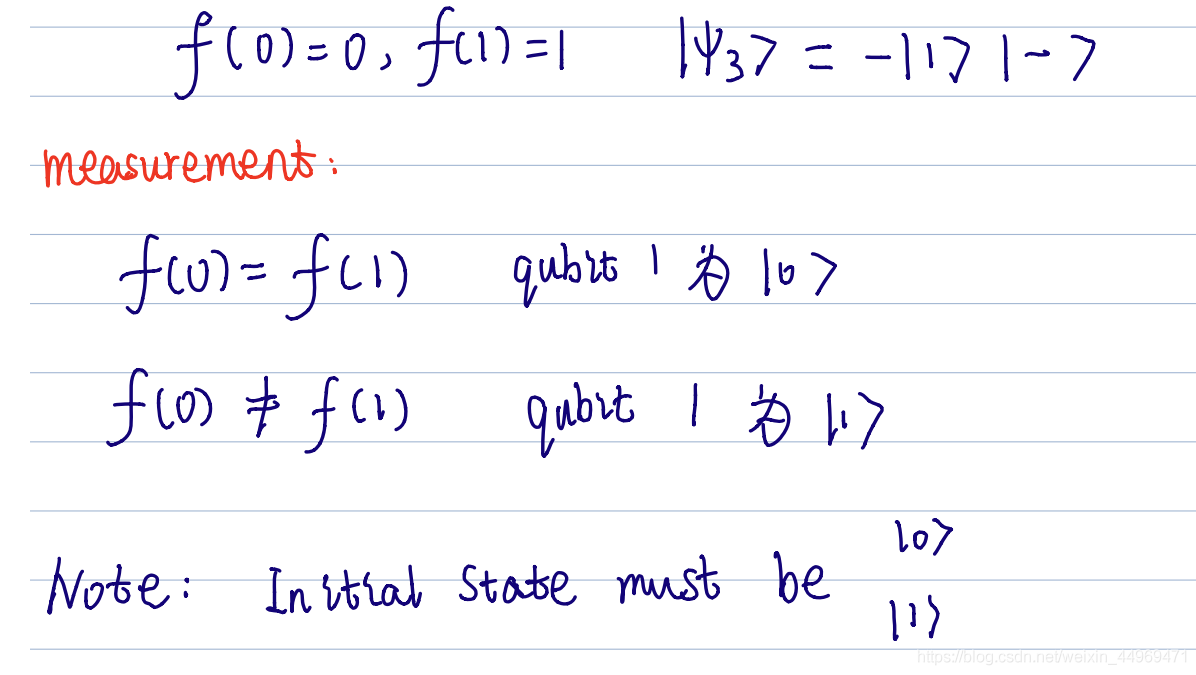 f(0)=0, f(1)=1 |ψ₃> = -|1>|->
measurement:
f(0)= f(1) qubit 1 为 |0>
f(0) ≠ f(1) qubit 1 为 |1>
|0>
Note: Initial state must be
|1>
https://blog.csdn.net/weixin_44969471